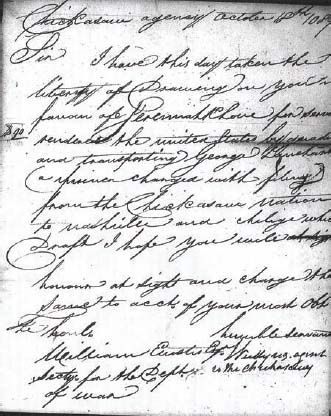 Chickasaw agency October 4th
Sir I have this day taken the
liberty of Drawing on you in
favour of Jeremiah Love for servi
$90 rendered the united States by
and transporting George
a prisoner charged with felony
from the Chickasaw Nation
to nashville and
Draft I hope you will
honour at sight and charge the
same to acct of your most Obt
The Honbl humble servant
William Eustis Esqr agent
Secty for the Dept to the Chickasaw
of war